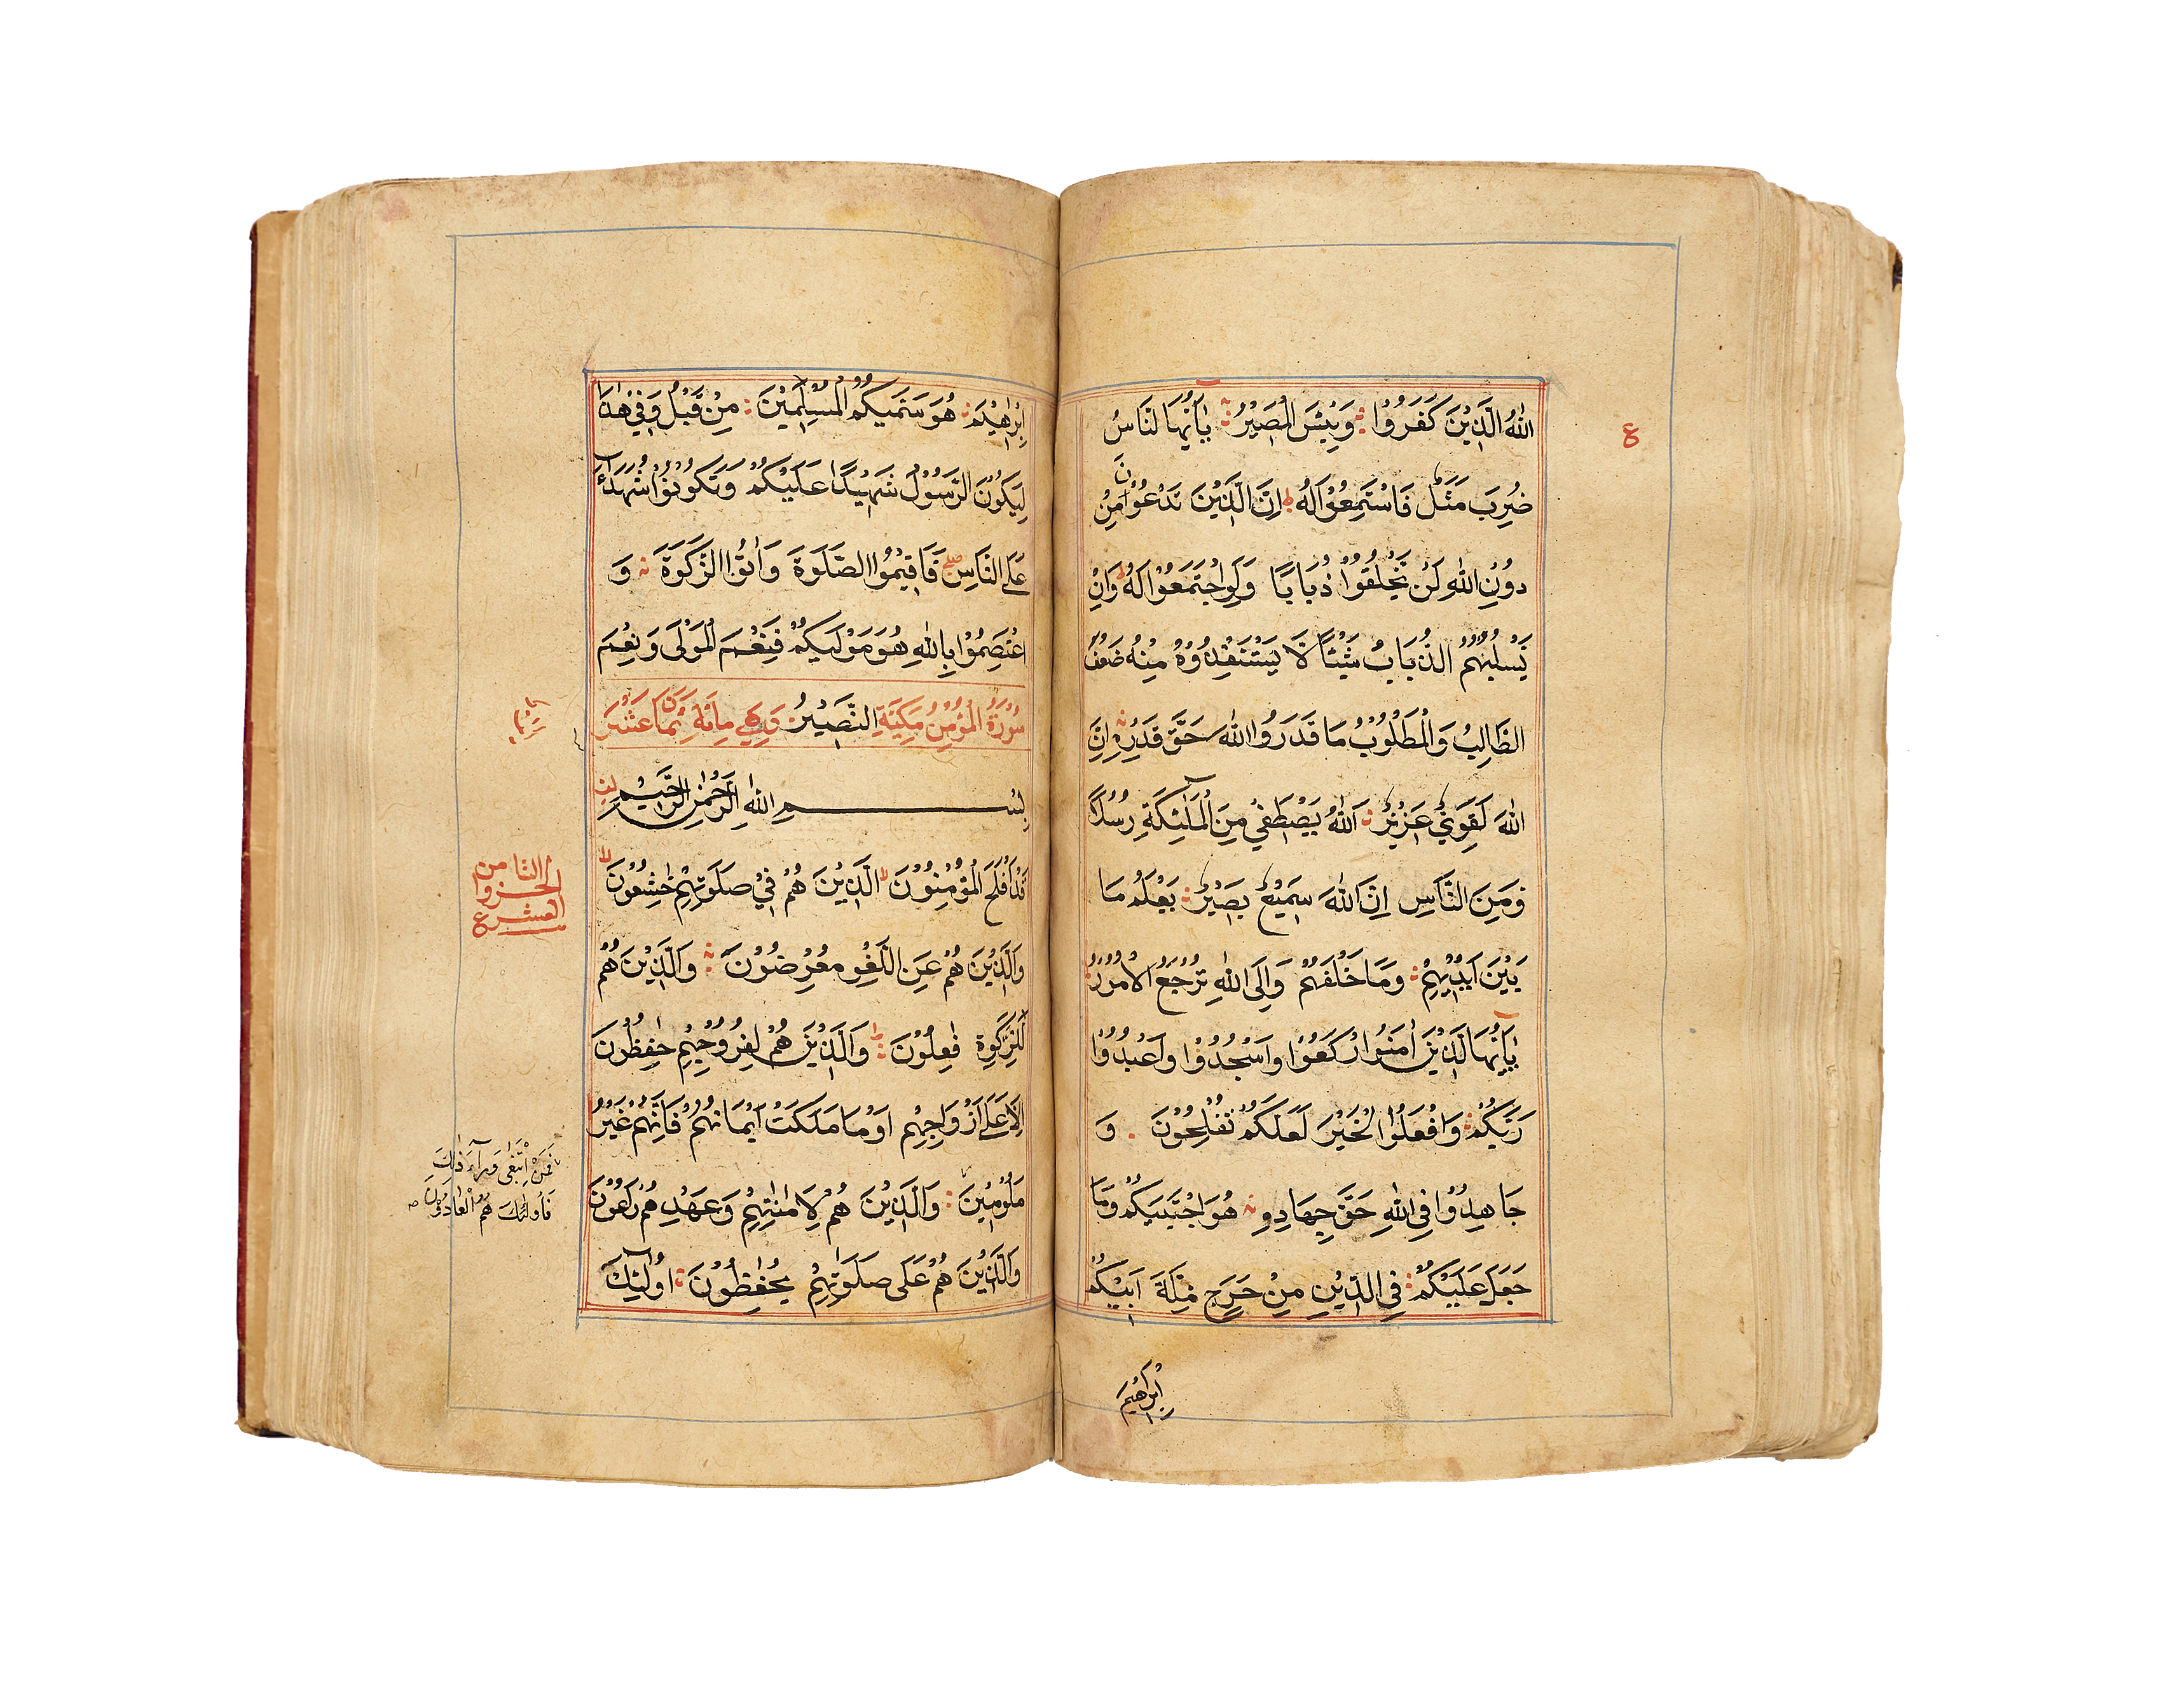 اللّٰهُ الَّذِيْنَ كَفَرُوْا وَبِئْسَ الْمَصِيْرُ يٰۤاَيُّهَا النَّاسُ
ع
ضُرِبَ مَثَلٌ فَاسْتَمِعُوْا لَهٗ ط اِنَّ الَّذِيْنَ تَدْعُوْنَ مِنْ
دُوْنِ اللّٰهِ لَنْ يَّخْلُقُوْا ذُبَابًا وَلَوِ اجْتَمَعُوْا لَهٗ ط وَاِنْ
يَّسْلُبْهُمُ الذُّبَابُ شَيْئًا لَّا يَسْتَنْقِذُوْهُ مِنْهُ ضَعُفَ
الطَّالِبُ وَالْمَطْلُوْبُ مَا قَدَرُوا اللّٰهَ حَقَّ قَدْرِهٖ اِنَّ
اللّٰهَ لَقَوِيٌّ عَزِيْزٌ اَللّٰهُ يَصْطَفِيْ مِنَ الْمَلٰٓئِكَةِ رُسُلًا
وَّمِنَ النَّاسِ اِنَّ اللّٰهَ سَمِيْعٌ بَصِيْرٌ يَعْلَمُ مَا
بَيْنَ اَيْدِيْهِمْ وَمَا خَلْفَهُمْ وَاِلَى اللّٰهِ تُرْجَعُ الْاُمُوْرُ
يٰۤاَيُّهَا الَّذِيْنَ اٰمَنُوا ارْكَعُوْا وَاسْجُدُوْا وَاعْبُدُوْا
رَبَّكُمْ وَافْعَلُوا الْخَيْرَ لَعَلَّكُمْ تُفْلِحُوْنَ وَ
جَاهِدُوْا فِي اللّٰهِ حَقَّ جِهَادِهٖ هُوَ اجْتَبٰىكُمْ وَمَا
جَعَلَ عَلَيْكُمْ فِي الدِّيْنِ مِنْ حَرَجٍ مِلَّةَ اَبِيْكُمْ
اِبْرَاهِيْمَ
اِبْرٰهِيْمَ هُوَ سَمّٰىكُمُ الْمُسْلِمِيْنَ مِنْ قَبْلُ وَفِيْ هٰذَا
لِيَكُوْنَ الرَّسُوْلُ شَهِيْدًا عَلَيْكُمْ وَتَكُوْنُوْا شُهَدَآءَ
عَلَى النَّاسِ صلے فَاَقِيْمُوا الصَّلٰوةَ وَاٰتُوا الزَّكٰوةَ وَ
اعْتَصِمُوْا بِاللّٰهِ هُوَ مَوْلٰىكُمْ فَنِعْمَ الْمَوْلٰى وَنِعْمَ
سُوْرَةُ الْمُؤْمِنُ مَكِّيَّةٌ النَّصِيْرُ وَهِيَ مِائَة ثَمَانَ عَشَرَ
بِسْمِ اللّٰهِ الرَّحْمٰنِ الرَّحِيْمِ
قَدْ اَفْلَحَ الْمُؤْمِنُوْنَ لا الَّذِيْنَ هُمْ فِيْ صَلٰوتِهِمْ خٰشِعُوْنَ لا
الثامن
الجزو ا
لعشر ع
وَالَّذِيْنَ هُمْ عَنِ اللَّغْوِ مُعْرِضُوْنَ وَالَّذِيْنَ هُمْ
لِلزَّكٰوةِ فٰعِلُوْنَ وَالَّذِيْنَ هُمْ لِفُرُوْجِهِمْ حٰفِظُوْنَ
اِلَّا عَلٰى اَزْوَاجِهِمْ اَوْ مَا مَلَكَتْ اَيْمَانُهُمْ فَاِنَّهُمْ غَيْرُ
مَلُوْمِيْنَ وَالَّذِيْنَ هُمْ لِاَمٰنٰتِهِمْ وَعَهْدِهِمْ رَاعُوْنَ
فَمَنِ ابْتَغٰى وَرَآءَ ذٰلِكَ
فَاُولٰئِكَ هُمُ الْعَادُوْنَ
وَالَّذِيْنَ هُمْ عَلٰى صَلَوٰتِهِمْ يُحَافِظُوْنَ اُولٰٓئِكَ